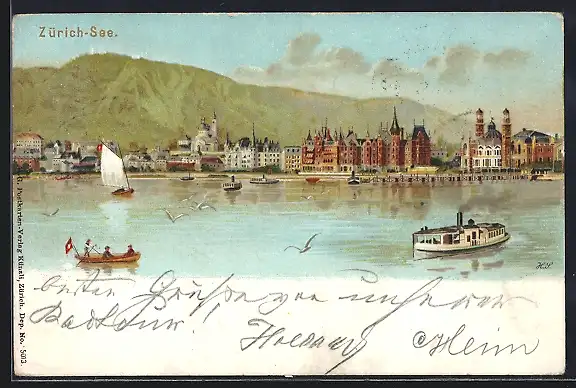 Zürich-See.
Postkarten-Verlag Künzli, Zürich. Dep. No. 503
H.S.
beste Grüsse von unserer
Radtour!
Heim